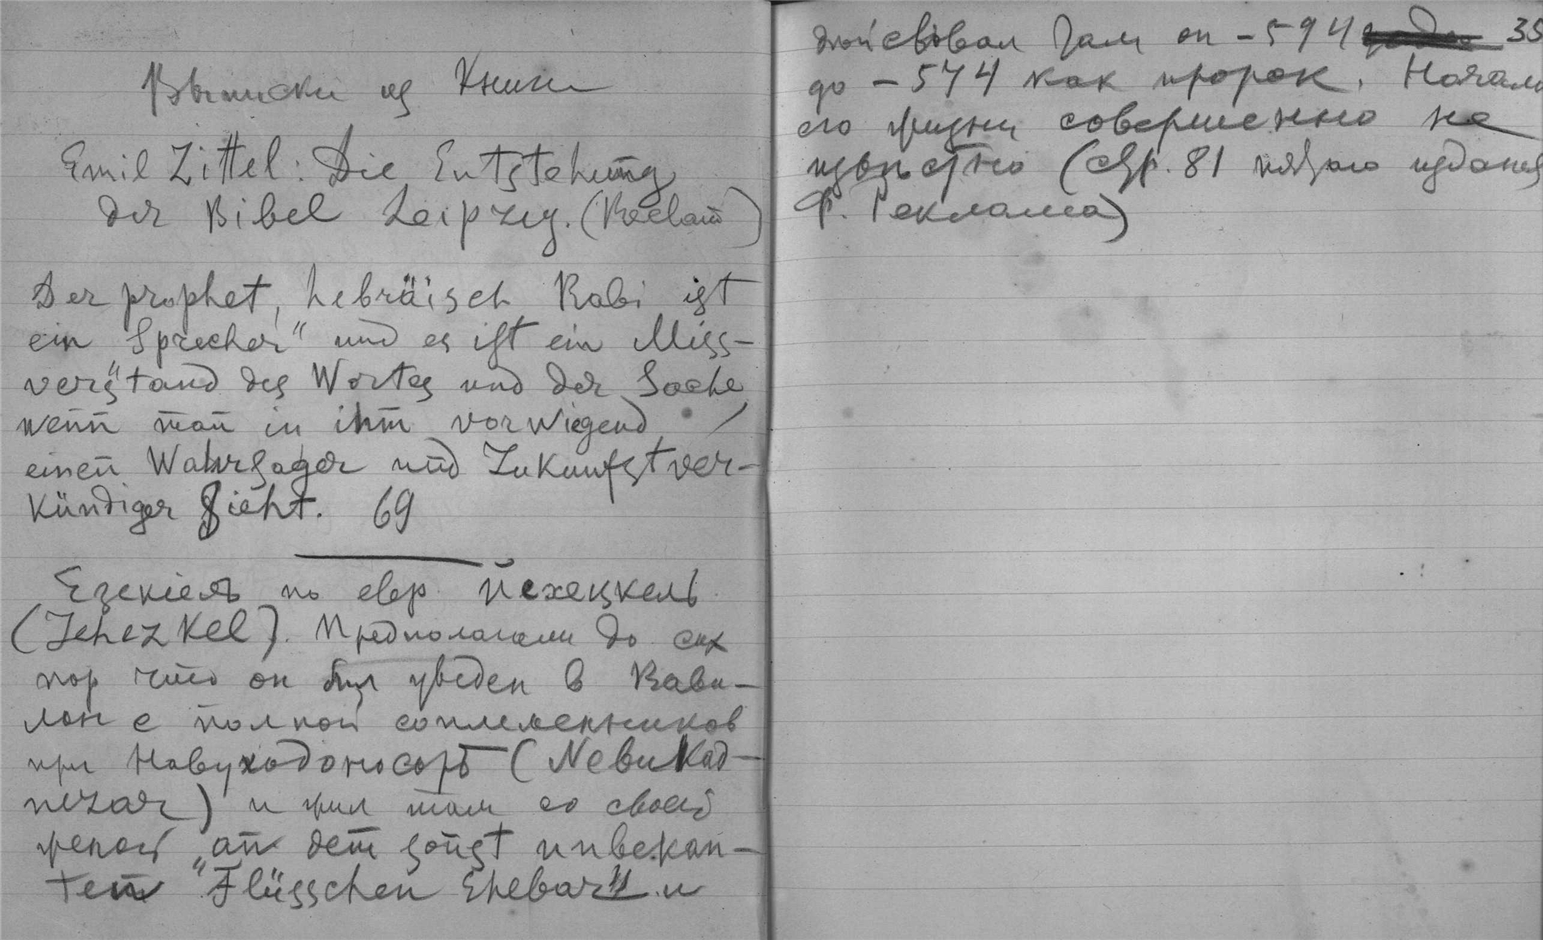 Выписки из Книги
Emil Zittel: Die Entstehung
der Bibel Leipzig. (Reclam)
Der prophet, hebräisch Rabi ist
ein „Sprecher“ und es ist ein Miss-
verstand des Wortes und der Sache,
wenn man in ihm vorwiegend
einen Wahrsager und Zukunftsver-
kündiger sieht. 69
Езекіель по евр. Йехецкель
(Jehezkel). Предполагали до сих
пор что он был уведен в Вави-
лон с толпой соплеменников
при Навуходоносорѣ (Nebukad-
nezar) и жил там со своей
женой „an dem sonst unbekan-
ten Flüsschen Chebar“ и
действовал там от -594 35
до -574 как пророк. Начало
его жизни совершенно не
извѣстно (стр. 81 пятого издания
Ф. Реклама)